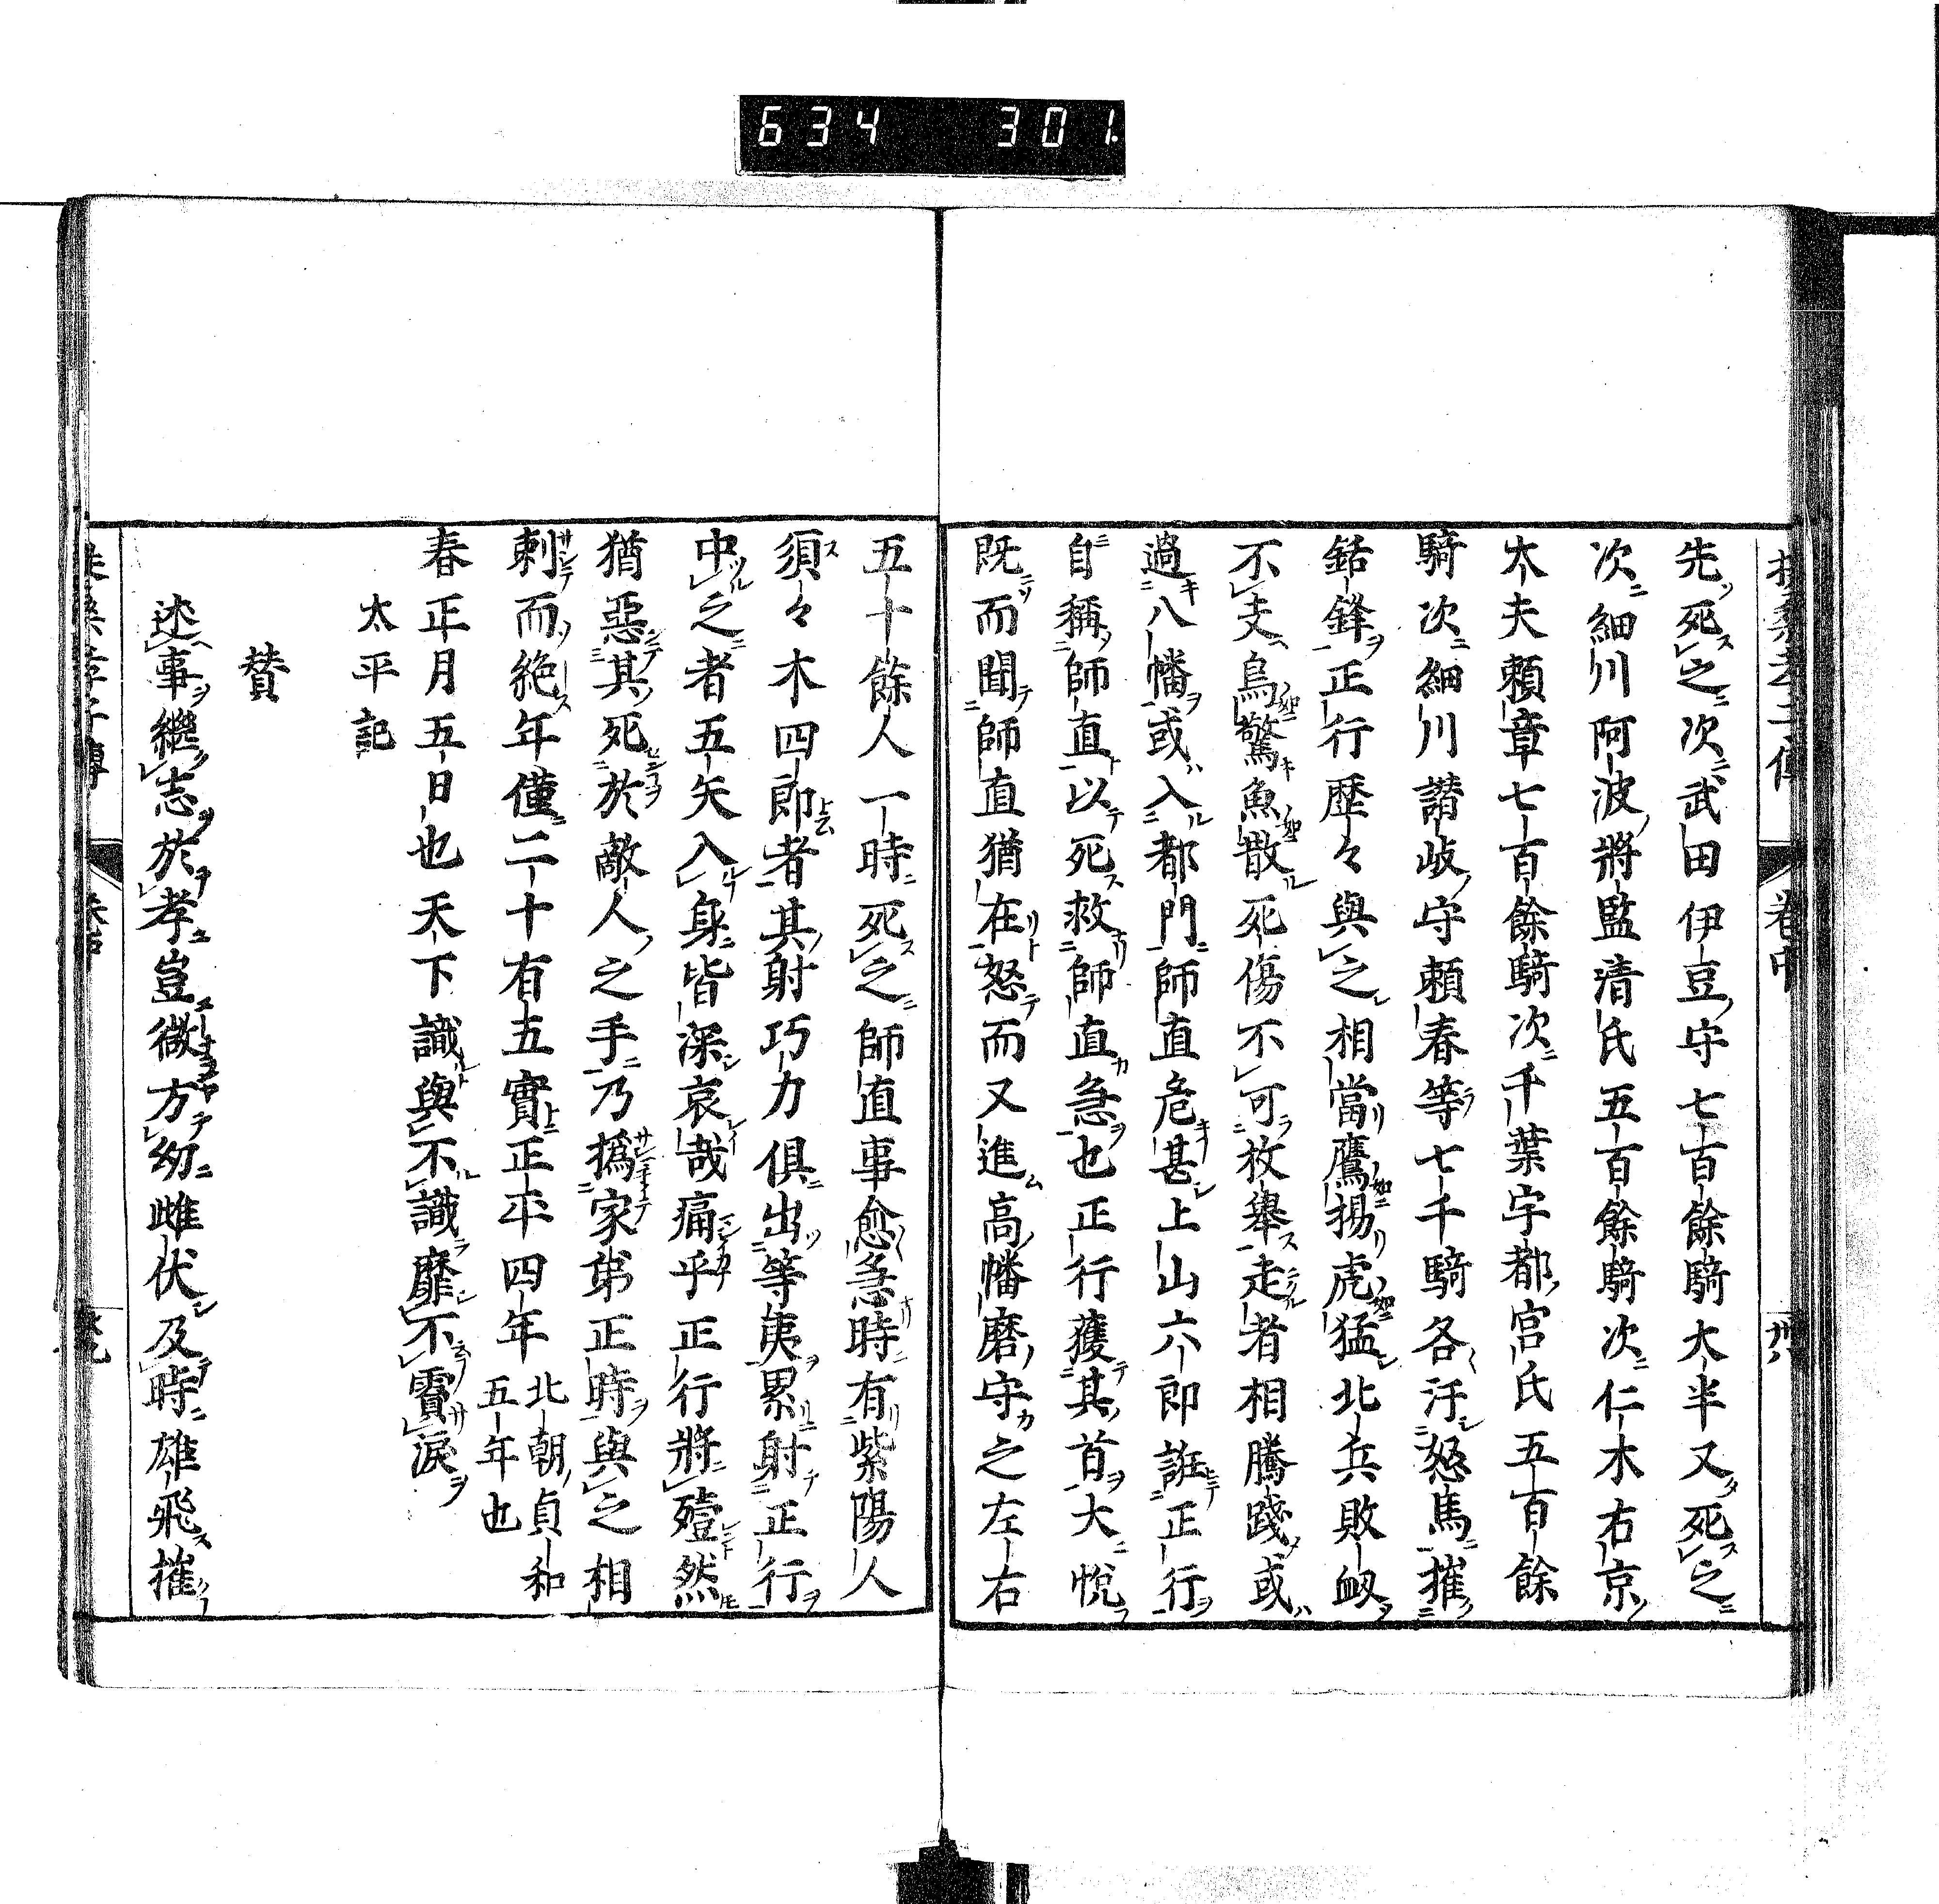 634 301.
先死之次武田伊豆守七百餘騎大半又死之
次細川阿波將監清氏五百餘騎次仁木右京
太夫頼章七百餘騎次千葉宇都宮氏五百餘
騎次細川讃岐守頼春等七千騎各汗怒馬摧
銛鋒正行歴々與之相當鷹揚虎猛北兵敗衄
不支鳥驚魚散死傷不可枚舉走者相騰踐或
過八幡或入都門師直危甚上山六郎誑正行
自稱師直以死救師直急也正行獲其首大悅
既而聞師直猶在怒而又進高幡磨守之左右
五十餘人一時死之師直事愈急時有紫陽人
須々木四郎者其射巧力俱出等夷累射正行
中之者五矢入身皆深哀哉痛乎正行將殪然
猶惡其死於敵人之手乃撝家弟正時與之相
刺而絶年僅二十有五實正平四年北朝貞和五年也
春正月五日也天下識與不識靡不賈淚
太平記
賛
述事繼志於孝豈微方幼雌伏及時雄飛摧